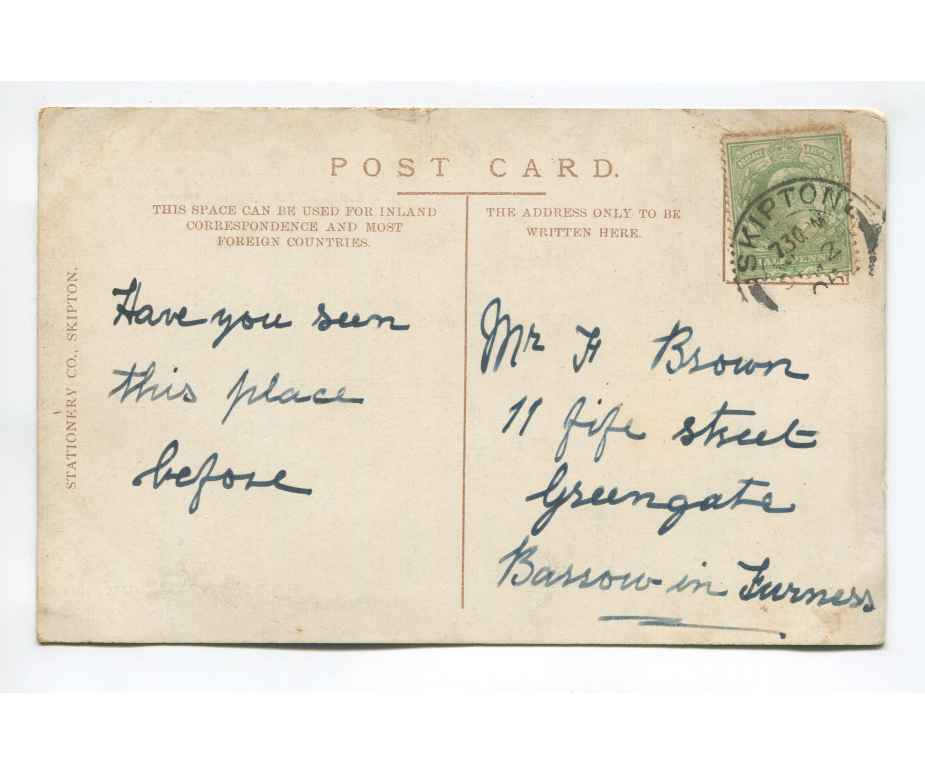 POST CARD.
THIS SPACE CAN BE USED FOR INLAND
CORRESPONDENCE AND MOST
FOREIGN COUNTRIES.
THE ADDRESS ONLY TO BE
WRITTEN HERE.
STATIONERY CO., SKIPTON.
SKIPTON
730
Have you seen
this place
before
Mr F Brown
11 fife street
Greengate
Barrow in Furness